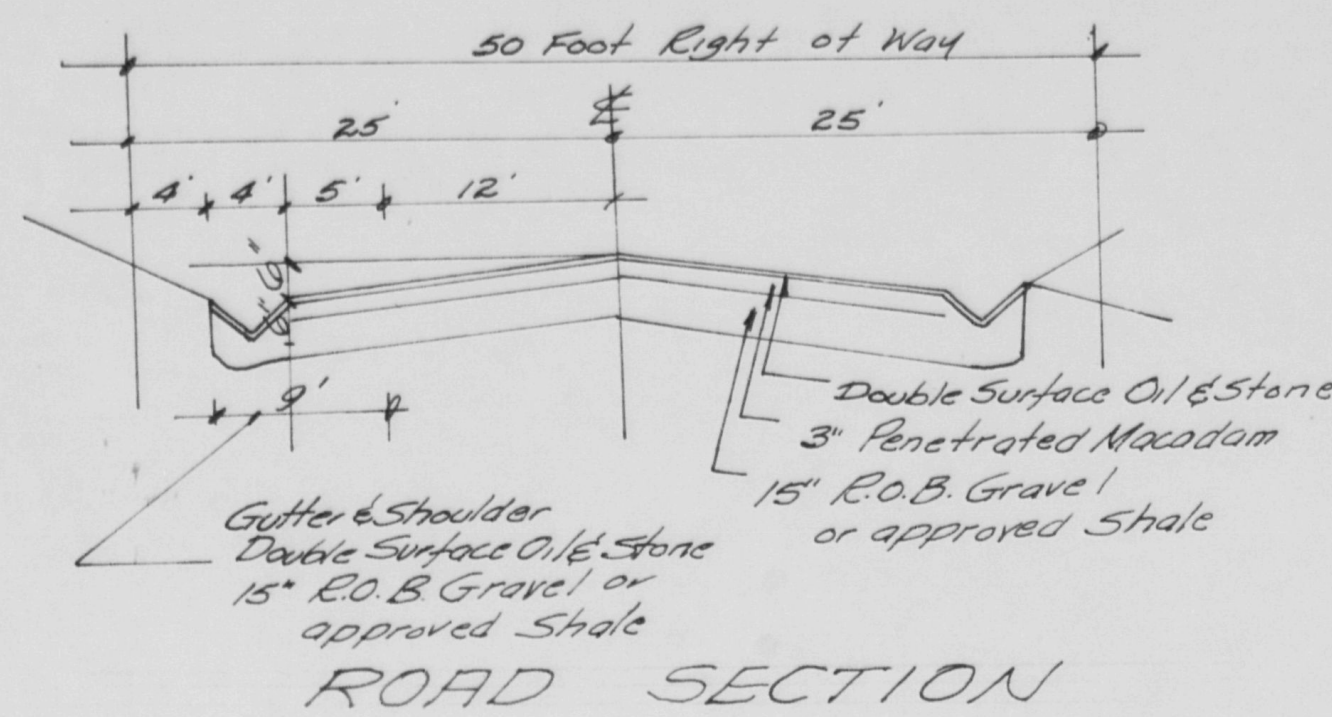 50 Foot Right of Way
25' ℄ 25'
4' 4' 5' 12'
6"
6"
9'
Double Surface Oil & Stone
3" Penetrated Macadam
15" R.O.B. Gravel
or approved Shale
Gutter & Shoulder
Double Surface Oil & Stone
15" R.O.B. Gravel or
approved Shale
ROAD SECTION